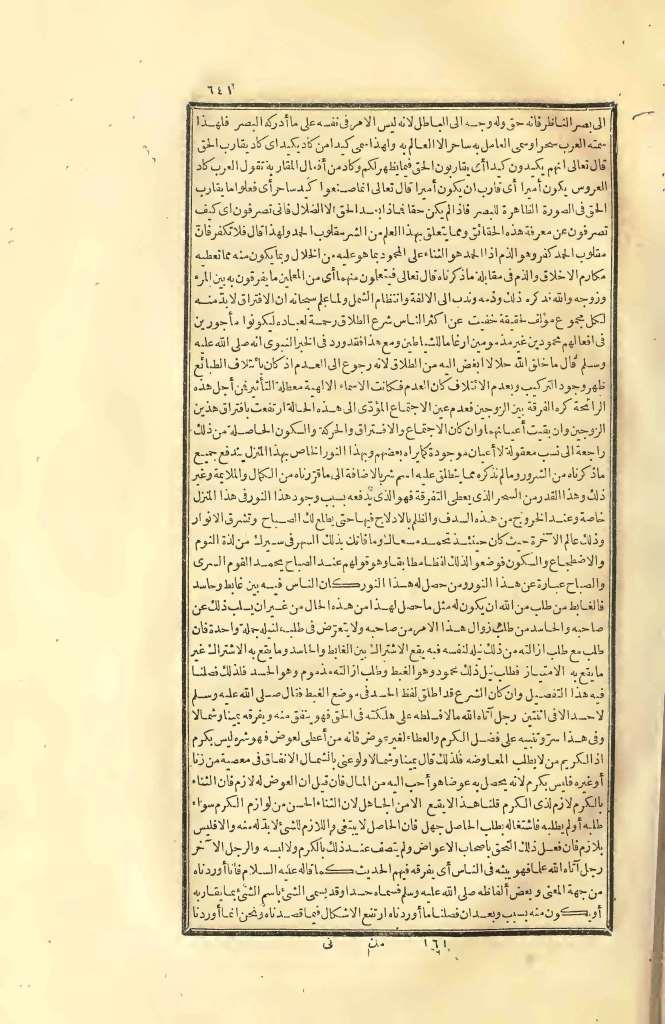 ٦٤١
الى بصر الناظر فانه حق وله وجه الى الباطل لانه ليس الامر فى نفسه على ما أدركه البصر فلهذا
سمته العرب سحرا وسمى العامل به ساحرا لا العالم به ولهذا سمى كيدا من كاد يكيد اى كاد يقارب الحق
قال تعالى انهم يكيدون كيدا أى يقاربون الحق فيما يظهر لكم وكاد من أفعال المقاربة تقول العرب كاد
العروس يكون أميرا أى قارب ان يكون أميرا قال تعالى انما صنعوا كيد ساحر أى فعلوا ما يقارب
الحق فى الصورة الظاهرة للبصر فاذا لم يكن حقا فماذا بعد الحق الا الضلال فانى تصرفون اى كيف
تصرفون عن معرفة هذه الحقائق ومما يتعلق بهذا العلم من الشر مقلوب الحمد ولهذا قال فلا تكفر فان
مقلوب الحمد كفر وهو الذم اذ الحمد هو الثناء على المحمود بما هو عليه من الخلال وبما يكون منه مما تعطيه
مكارم الاخلاق والذم فى مقابلة ما ذكرناه قال تعالى فيتعلون منهما أى من المعلمين ما يفرقون به بين المرء
وزوجه والله قد كره ذلك وذمه وندب الى الالفة وانتظام الشمل ولما علم سبحانه ان الافتراق لا بد منه
لكل مجموع مؤلف لحقيقة خفيت عن أكثر الناس شرع الطلاق رحمة لعباده ليكونوا مأجورين
فى افعالهم محمودين غير مذمومين ارغاما للشياطين ومع هذا فقد ورد فى الخبر النبوى انه صلى الله عليه
وسلم قال ما خلق الله حلالا ابغض اليه من الطلاق لانه رجوع الى العدم اذ كان بائتلاف الطبائع
ظهر وجود التركيب وبعدم الائتلاف كان العدم فكانت الاسماء الالهية معطلة التأثير فمن أجل هذه
الرائحة كره الفرقة بين الزوجين فعدم عين الاجتماع المؤدى الى هذه الحالة ارتفعت بافتراق هذين
الزوجين وان بقيت أعيانهما وان كان الاجتماع والافتراق والحركة والسكون الحاصلة من ذلك
راجعة الى نسب معقولة لا أعيان موجودة كما يراه بعضهم وبهذا النور الخاص بهذا المنزل يندفع جميع
ما ذكرناه من الشرور وما لم نذكره مما ينطلق عليه اسم شر بالاضافة الى ما قررناه من الكمال والملايمة وغير
ذلك وهذا القدر من السحر الذى يعطى التفرقة فهو الذى يدفعه بسبب وجود هذا النور فى هذا المنزل
خاصة وعند الخروج من هذه السدف والظلم بالادلاج فيها حتى يطلع لك الصباح وتشرق الانوار
وذلك عالم الآخرة حيث كان حينئذ تحمد مسعاك وما فاتك بذلك السهر فى سيرك من لذة النوم
والاضطجاع والسكون فوضعوا لذلك لفظا مطابقا وهو قولهم عند الصباح يحمد القوم السرى
والصباح عبارة عن هذا النور ومن حصل له هذا النور كان الناس فيه بين غابط وحاسد
فالغابط من طلب من الله ان يكون له مثل ما حصل لهذا من هذه الحال من غير ان يسلب ذلك عن
صاحبه والحاسد من طلب زوال هذا الامر من صاحبه ولا يتعرض فى طلبه لنيله جملة واحدة فان
طلب مع طلب ازالته من ذلك نيله لنفسه فبه يقع الاشتراك بين الغابط والحاسد وما يقع به الاشتراك غير
ما يقع به الامتياز فطلب نيل ذلك محمود وهو الغبط وطلب ازالته مذموم وهو الحسد فلذلك فصلنا
فيه هذا التفصيل وان كان الشرع قد اطلق لفظ الحسد فى موضع الغبط فقال صلى الله عليه وسلم
لا حسد الا فى اثنتين رجل آتاه الله مالا فسلطه على هلكته فى الحق فهو ينفق منه ويفرقه يمينا وشمالا
وفى هذا سر وتنبيه على فضل الكرم والعطاء لغير عوض فانه من أعطى لعوض فهو شره ليس بكرم
اذ الكريم من لا يطلب المعاوضه فلذلك قال يمينا وشمالا ولو عنى بالشمال الانفاق فى معصية من زنا
أو غيره فليس بكرم لانه يحصل به عوضا هو أحب اليه من المال فان قيل ان العوض له لازم فان الثناء
بالكرم لازم لذى الكرم قلنا هذا لا يقع الا من الجاهل لان الثناء الحسن من لوازم الكرم سواء
طلبه أو لم يطلبه فاشتغاله بطلب الحاصل جهل فان الحاصل لا يبتغى واللازم للشئ لا بد له منه والا فليس
بلازم فان فعل ذلك التحق بأصحاب الاعواض ولم يتصف عند ذلك بالكرم ولا لبسه والرجل الآخر
رجل آتاه الله علما فهو يبثه فى الناس أى يفرقه فيهم الحديث كما قاله عليه السلام فانا أوردناه
من جهة المعنى وبعض ألفاظه صلى الله عليه وسلم فسماه حسدا وقد يسمى الشئ باسم الشئ بما يقاربه
أو يكون منه بسبب وبعد ان فصلنا ما أوردناه ارتفع الاشكال فيما قصدناه ونحن انما أوردنا
١٦١ فى